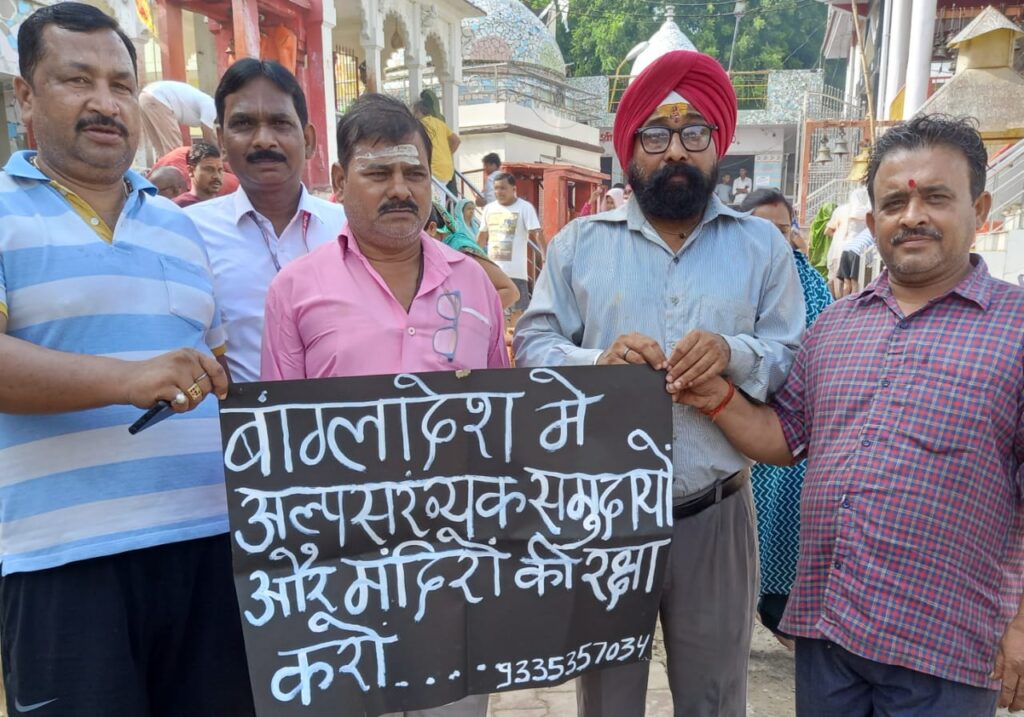 बांग्लादेश मे
अल्पसंख्यक समुदायों
और मंदिरों की रक्षा
करो.... 9335357034